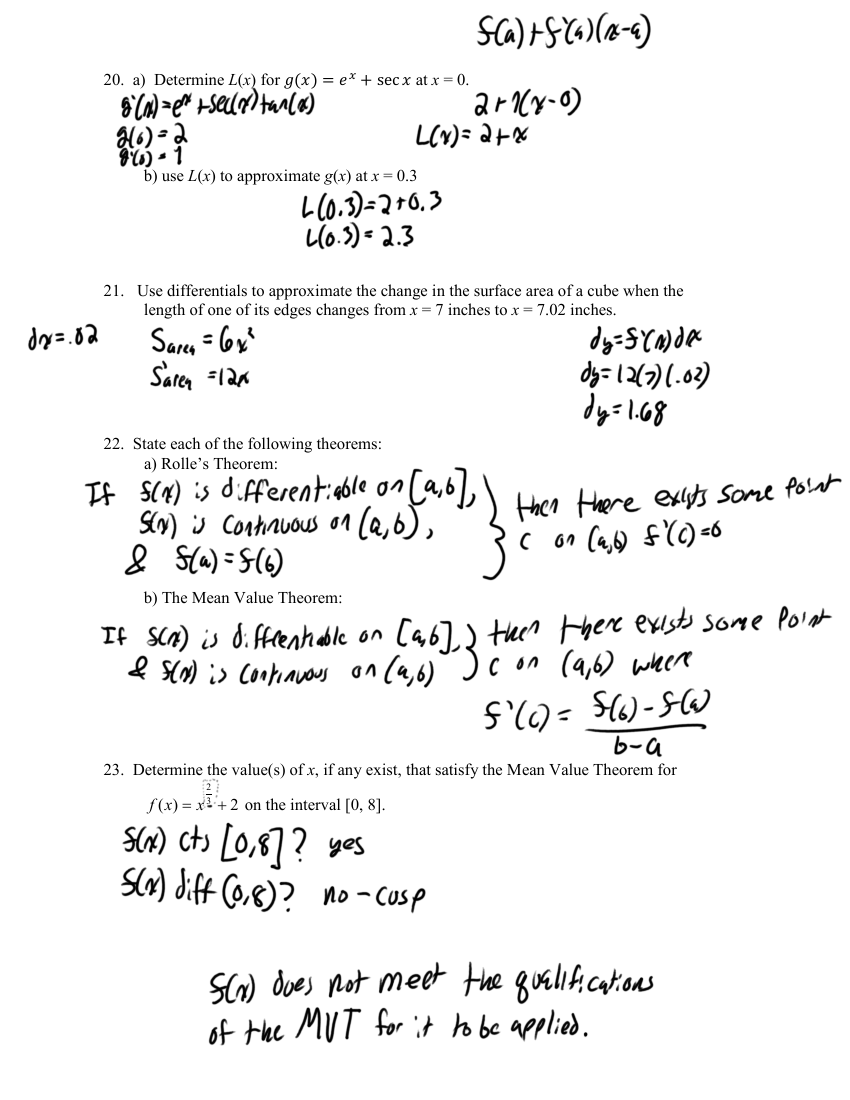 f(a)+f'(a)(x-a)
20. a) Determine L(x) for g(x) = e^x + sec x at x = 0.
g'(x)=e^x+sec(x)tan(x)
2+1(x-0)
g(0)=2
L(x)=2+x
g'(0)=1
b) use L(x) to approximate g(x) at x = 0.3
L(0.3)=2+0.3
L(0.3)=2.3
21. Use differentials to approximate the change in the surface area of a cube when the
length of one of its edges changes from x = 7 inches to x = 7.02 inches.
dx=.02
S area = 6x²
dy=f'(x)dx
S' area =12x
dy=12(7)(.02)
dy=1.68
22. State each of the following theorems:
a) Rolle's Theorem:
If f(x) is differentiable on [a,b], } then there exists some point
f(x) is continuous on (a,b), c on (a,b) f'(c)=0
& f(a)=f(b)
b) The Mean Value Theorem:
If f(x) is differentiable on [a,b], } then there exists some point
& f(x) is continuous on (a,b) c on (a,b) where
f'(c) = f(b)-f(a)
b-a
23. Determine the value(s) of x, if any exist, that satisfy the Mean Value Theorem for
f(x) = x^(2/3) + 2 on the interval [0, 8].
f(x) cts [0,8]? yes
f(x) diff (0,8)? no - cusp
f(x) does not meet the qualifications
of the MVT for it to be applied.